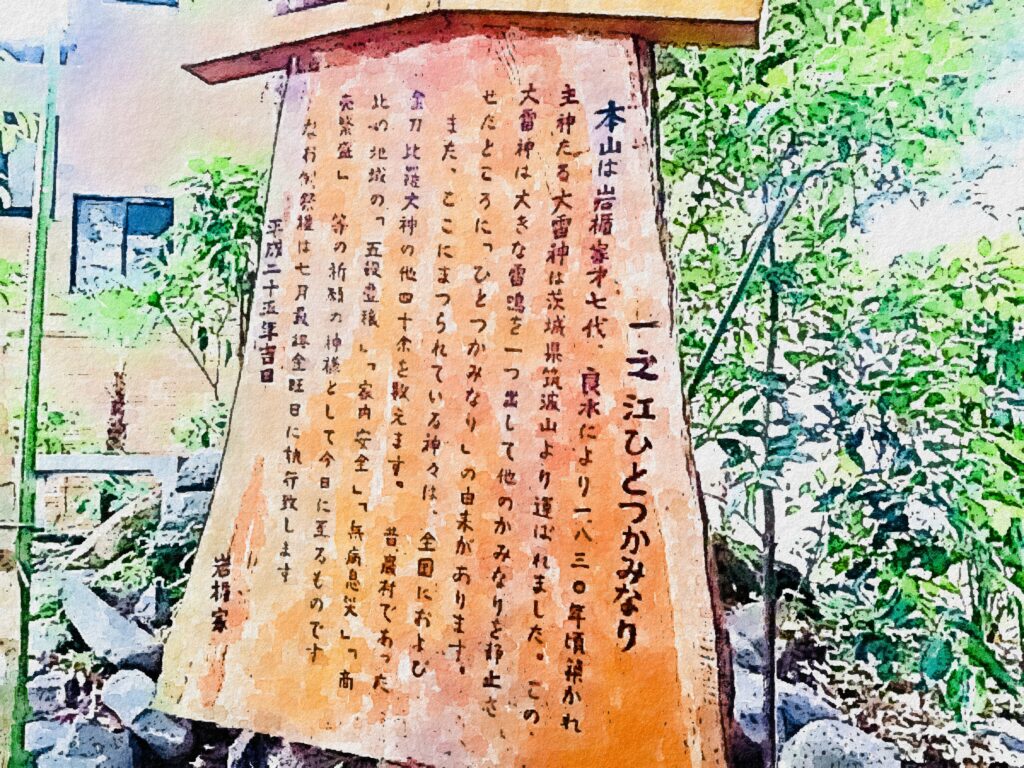 一之江ひとつかみなり
本山は岩楯家才七代、良水により一八三〇年頃築かれ
主神たる大雷神は茨城県筑波山より運ばれました。この
大雷神は大きな雷鳴を一つ出して他のかみなりを静止さ
せたところに「ひとつかみなり」の由来があります。
また、ここにまつられている神々は、全国および
金刀比羅大神の他四十余を数えます。 昔農村であった
此の地域の「五穀豊穣」「家内安全」「無病息災」「商
売繁盛」 等の祈願の神様として今日に至るものです
なお例祭禮は七月最終金旺日に執行致します
平成二十五年吉日
岩楯家